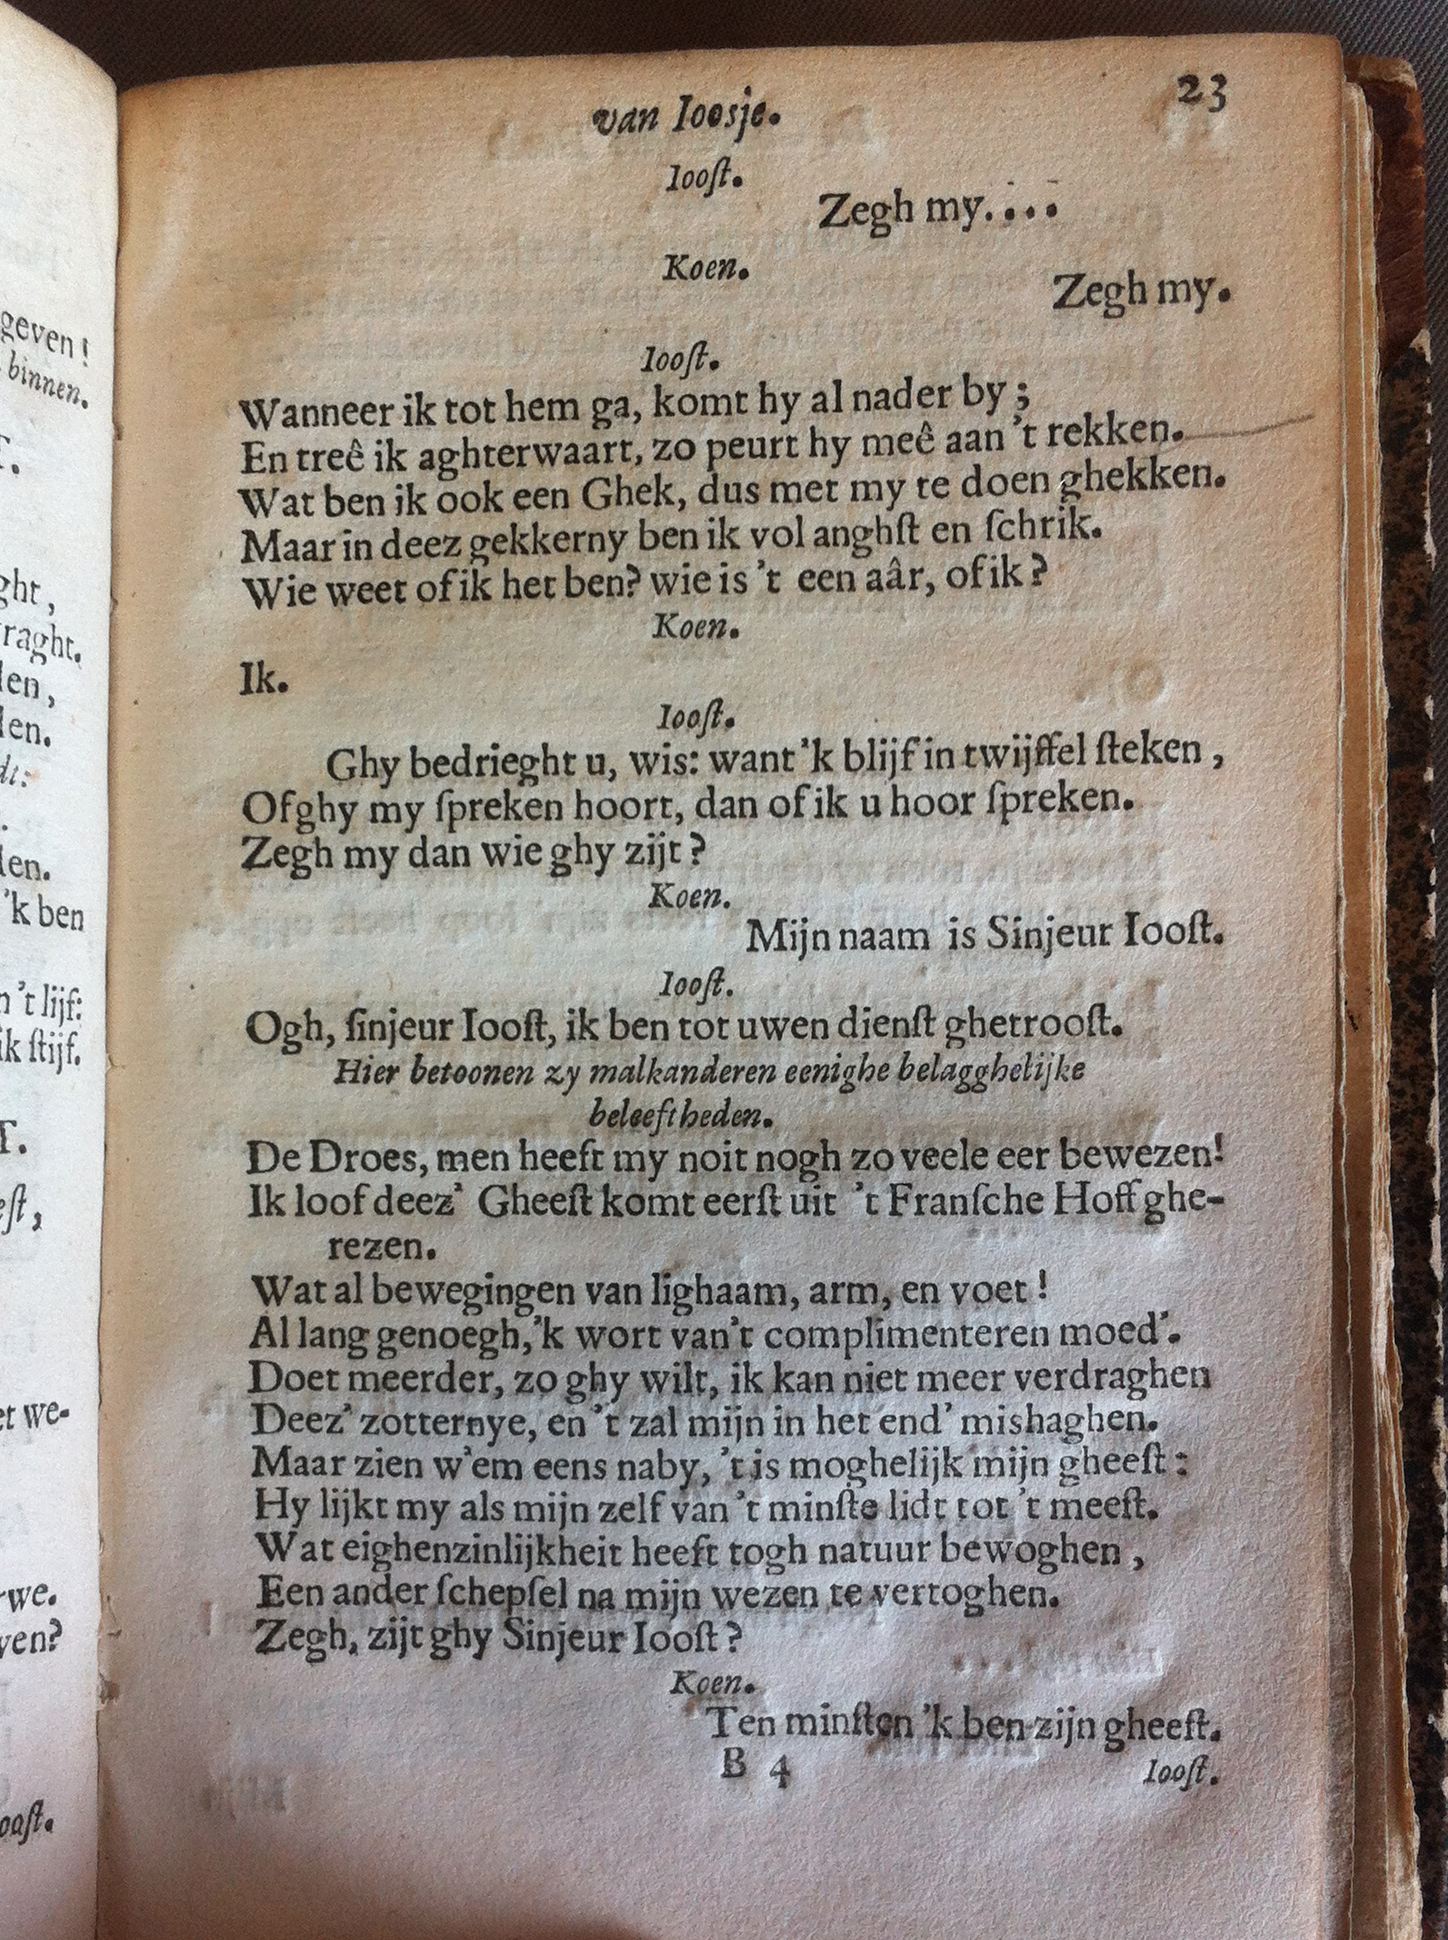 geven!
binnen.
T.
ght,
raght.
den,
den.
dt:
den.
'k ben
n 't lijf:
ik ſtijf.
T.
eſt,
et we-
rwe.
ven?
ooſt.
van Ioosje.
23
Iooſt.
Zegh my....
Koen.
Zegh my.
Iooſt.
Wanneer ik tot hem ga, komt hy al nader by;
En treê ik aghterwaart, zo peurt hy meê aan 't rekken.
Wat ben ik ook een Ghek, dus met my te doen ghekken.
Maar in deez gekkerny ben ik vol anghſt en ſchrik.
Wie weet of ik het ben? wie is 't een aâr, of ik?
Koen.
Ik.
Iooſt.
Ghy bedrieght u, wis: want 'k blijf in twijffel ſteken,
Of ghy my ſpreken hoort, dan of ik u hoor ſpreken.
Zegh my dan wie ghy zijt?
Koen.
Mijn naam is Sinjeur Iooſt.
Iooſt.
Ogh, ſinjeur Iooſt, ik ben tot uwen dienſt ghetrooſt.
Hier betoonen zy malkanderen eenighe belagghelijke
beleeftheden.
De Droes, men heeft my noit nogh zo veele eer bewezen!
Ik loof deez' Gheeſt komt eerſt uit 't Franſche Hoff ghe-
rezen.
Wat al bewegingen van lighaam, arm, en voet!
Al lang genoegh,'k wort van't complimenteren moed'.
Doet meerder, zo ghy wilt, ik kan niet meer verdraghen
Deez' zotternye, en 't zal mijn in het end' mishaghen.
Maar zien w'em eens naby, 't is moghelijk mijn gheeſt:
Hy lijkt my als mijn zelf van 't minſte lidt tot 't meeſt.
Wat eighenzinlijkheit heeft togh natuur bewoghen,
Een ander ſchepſel na mijn wezen te vertoghen.
Zegh, zijt ghy Sinjeur Iooſt?
Koen.
Ten minſten 'k ben zijn gheeſt.
B 4
Iooſt.